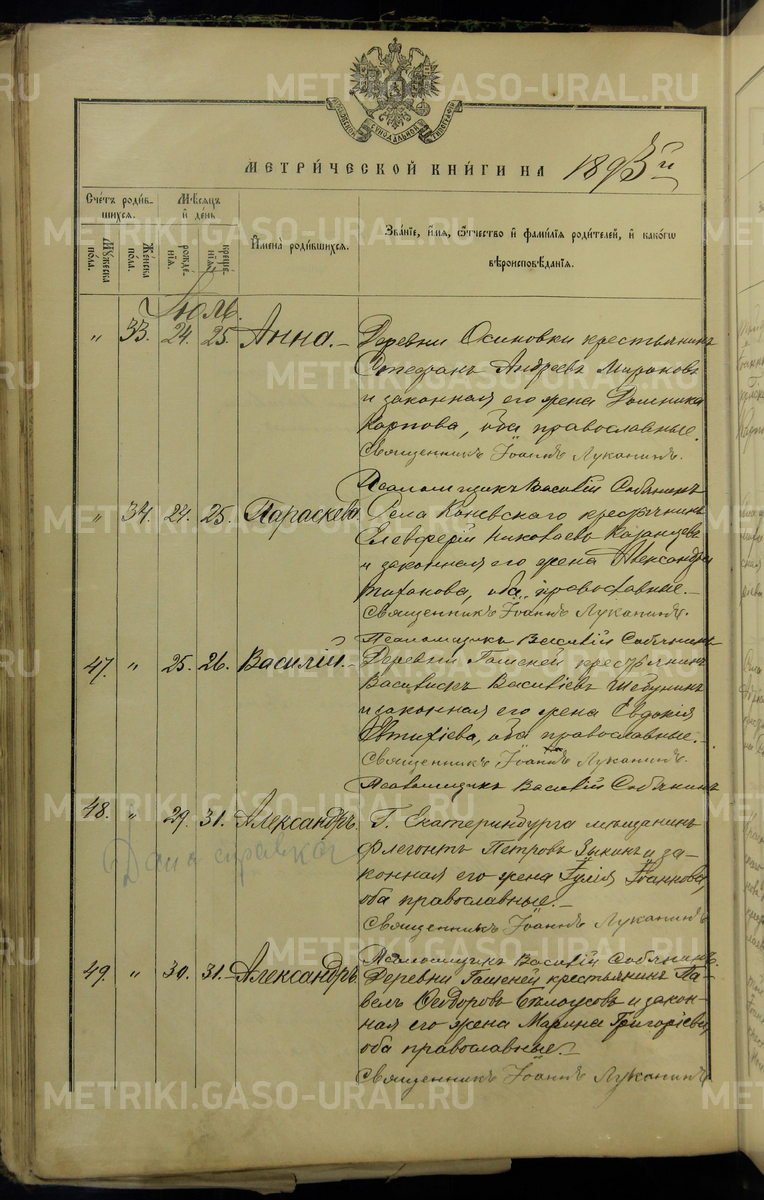 МОСКОВСКОЙ СѴНОДАЛЬНОЙ ТИПОГРАФІИ
МЕТРИ́ЧЕСКОЙ КНИ́ГИ НА 1893й
Счетъ роди́вшихся.
Мѣсяцъ и день
Имена родившихся.
Званіе, имя, отчество и фамилія родителей, и какого вѣроисповѣданія.
Мужеска пола.
Женска пола.
рожденія.
крещенія.
Іюль.
" 33. 24. 25. Анна. – Деревни Осиновки крестьянинъ
Стефанъ Андреевъ Мироновъ
и законная его жена Домника
Карпова, оба православные.
Священникъ Іоаннъ Луканинъ.
Псаломщикъ Василій Собянинъ
" 34. 24. 25. Параскева Села Коневскаго крестьянинъ
Елевферій Николаевъ Казанцевъ
и законная его жена Александра
оба православные. –
Священникъ Іоаннъ Луканинъ.
Псаломщикъ Василій Собянинъ
47. " 25. 26. Василій. – Деревни Гашеней крестьянинъ
Василіевъ
и законная его жена Евдокія
Евтихіева, оба православные. –
Священникъ Іоаннъ Луканинъ.
Псаломщикъ Василій Собянинъ
48. " 29. 31. Александръ. Г. Екатеринбурга мѣщанинъ
Флегонтъ Петровъ Зыкинъ и за-
конная его жена Іулія
оба православные. –
Священникъ Іоаннъ Луканинъ
Дана справка
Псаломщикъ Василій Собянинъ.
49. " 30. 31. – Александръ. Деревни Гашеней крестьянинъ Па-
велъ Ѳеодоровъ Бѣлоусовъ и закон-
ная его жена Марина Григоріева,
оба православные. –
Священникъ Іоаннъ Луканинъ
METRIKI.GASO-URAL.RU